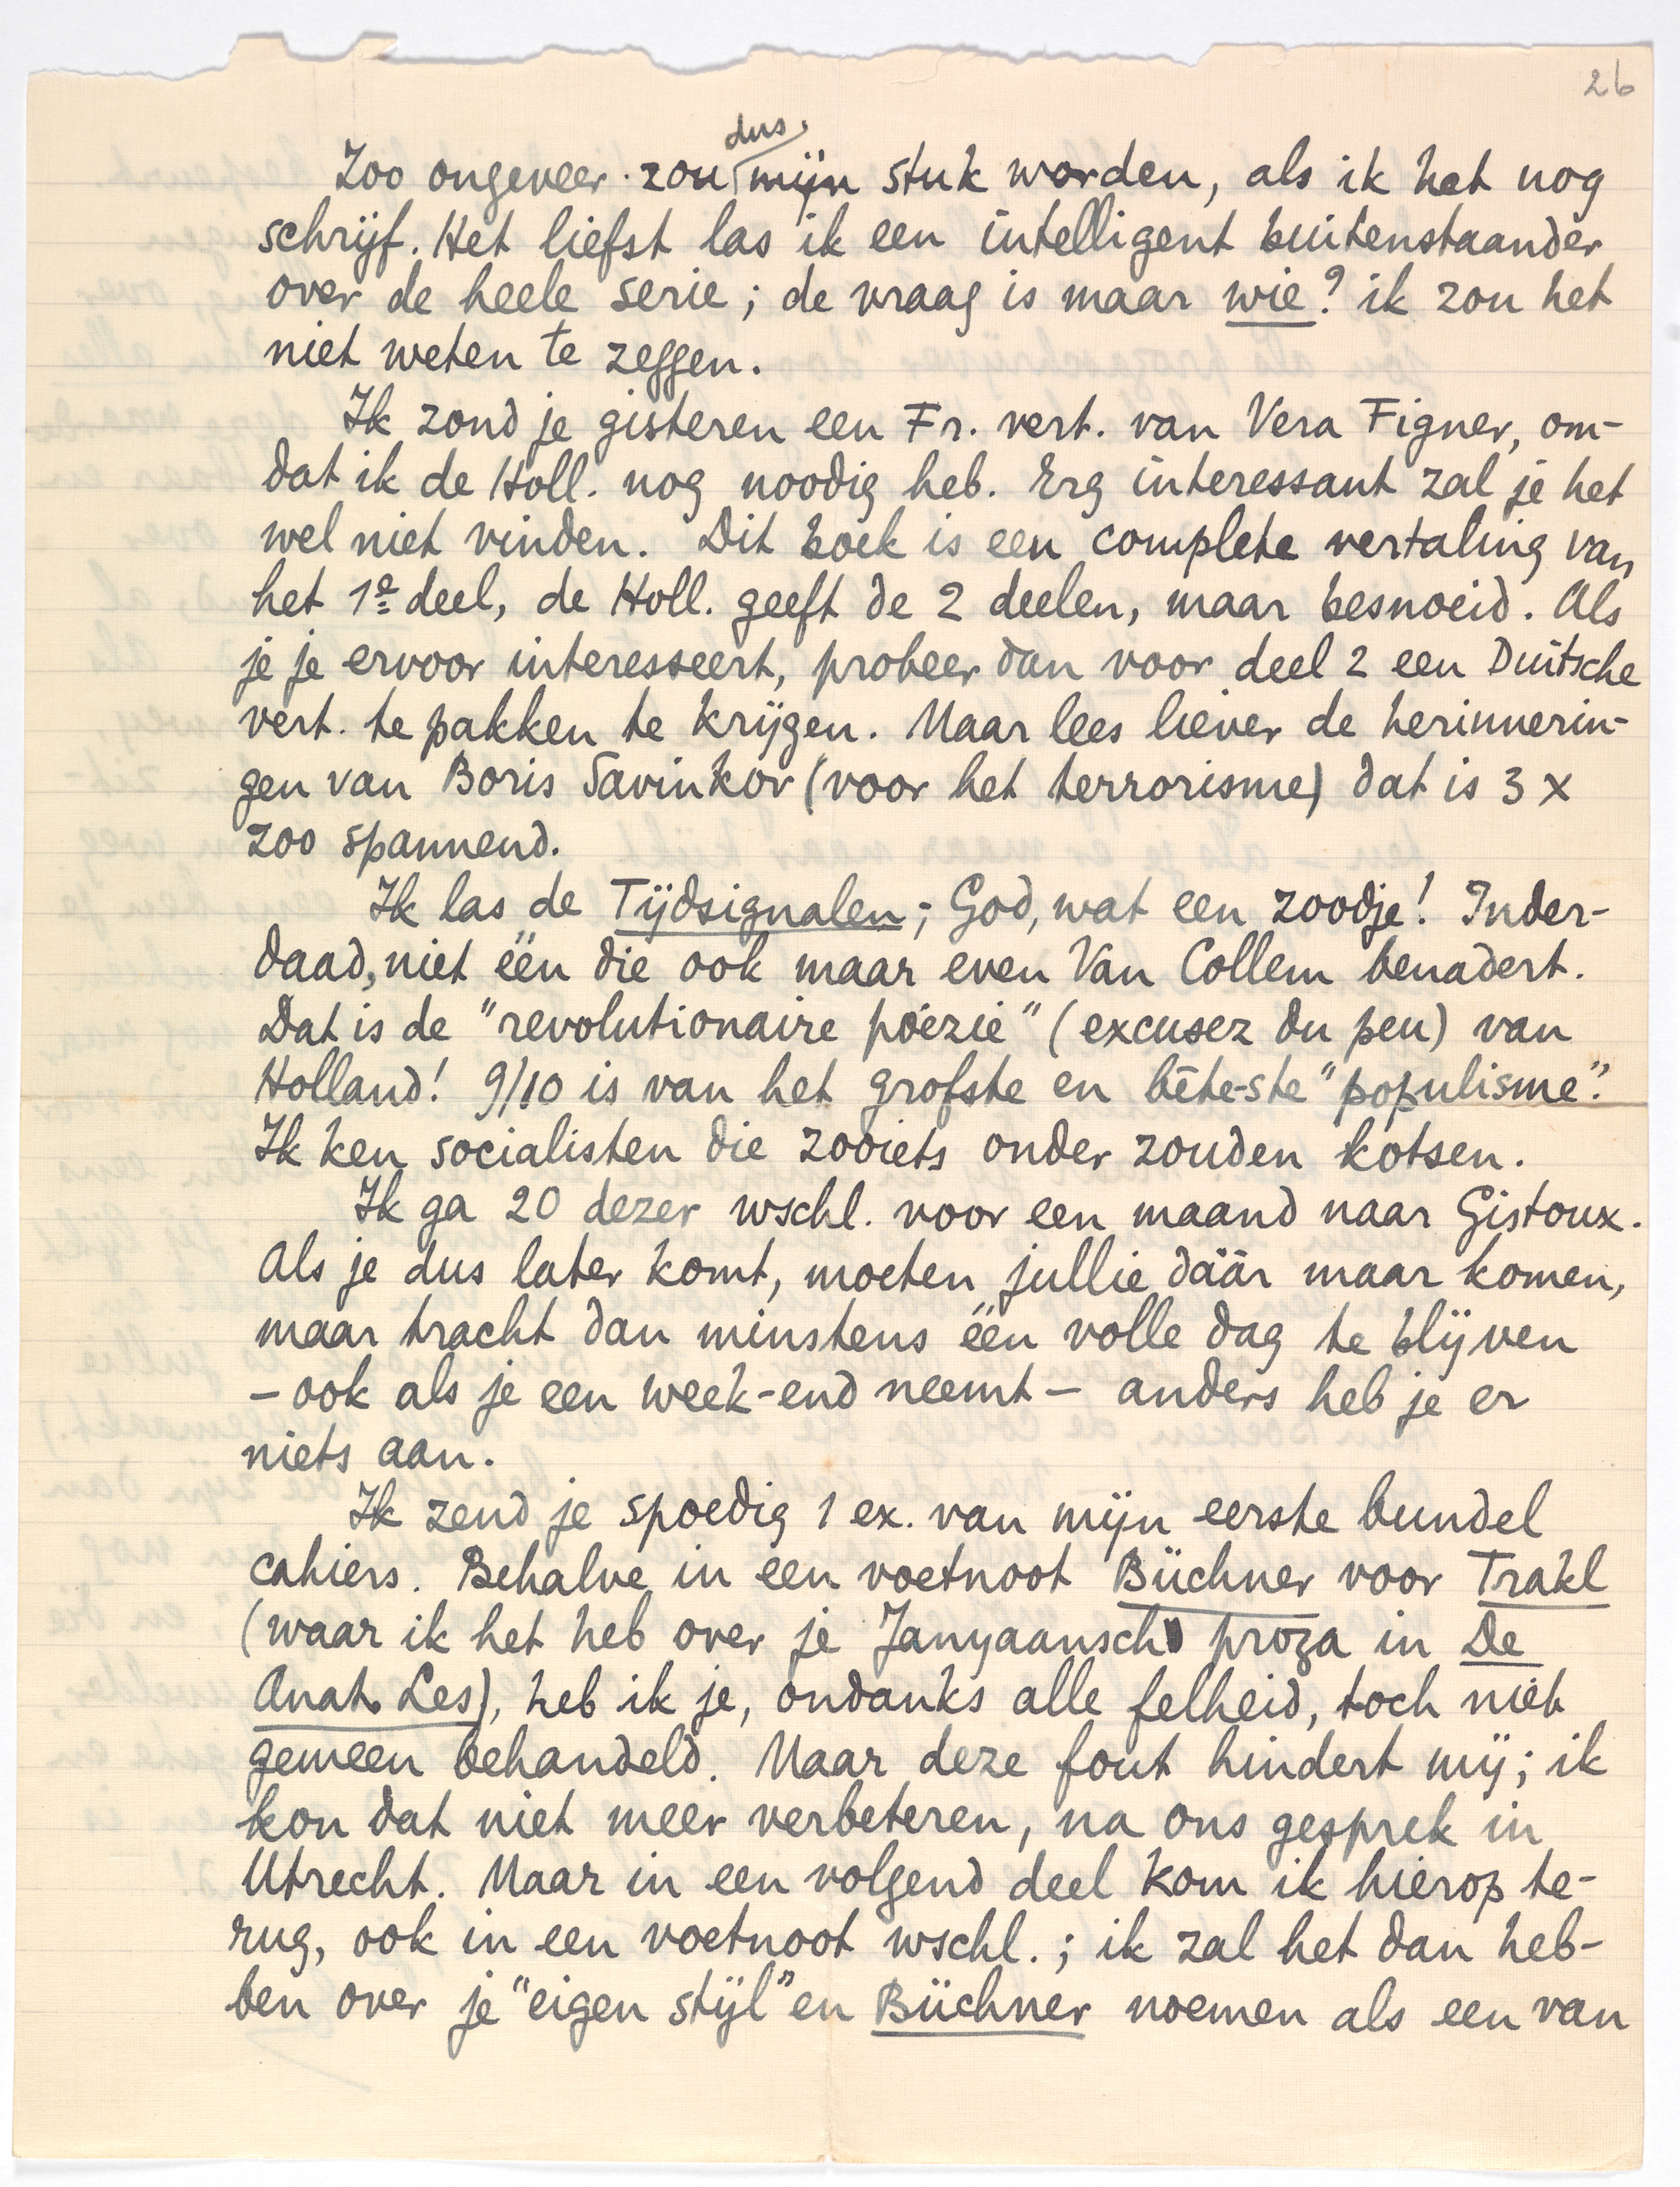 26
Zoo ongeveer zou dus mijn stuk worden, als ik het nog
schrijf. Het liefst las ik een intelligent buitenstaander
over de heele serie; de vraag is maar wie? ik zou het
niet weten te zeggen.
Ik zond je gisteren een Fr. vert. van Vera Figner, om-
dat ik de Holl. nog noodig heb. Erg interessant zal je het
wel niet vinden. Dit boek is een complete vertaling van
het 1e deel, de Holl. geeft de 2 deelen, maar besnoeid. Als
je je ervoor interesseert, probeer dan voor deel 2 een Duitsche
vert. te pakken te krijgen. Maar lees liever de herinnerin-
gen van Boris Savinkov (voor het terrorisme) dat is 3 x
zoo spannend.
Ik las de Tijdsignalen; God, wat een zoodje! Inder-
daad, niet één die ook maar even Van Collem benadert.
Dat is de "revolutionaire poëzie" (excusez du peu) van
Holland! 9/10 is van het grofste en bête-ste "populisme".
Ik ken socialisten die zooiets onder zouden kotsen.
Ik ga 20 dezer wschl. voor een maand naar Gistoux.
Als je dus later komt, moeten jullie dáár maar komen,
maar tracht dan minstens één volle dag te blijven
– ook als je een week-end neemt – anders heb je er
niets aan.
Ik zend je spoedig 1 ex. van mijn eerste bundel
cahiers. Behalve in een voetnoot Büchner voor Trakl
(waar ik het heb over je Janyaansch proza in De
Anat. Les), heb ik je, ondanks alle felheid, toch niet
gemeen behandeld. Maar deze fout hindert mij; ik
kon dat niet meer verbeteren, na ons gesprek in
Utrecht. Maar in een volgend deel kom ik hierop te-
rug, ook in een voetnoot wschl.; ik zal het dan heb-
ben over je "eigen stijl" en Büchner noemen als een van